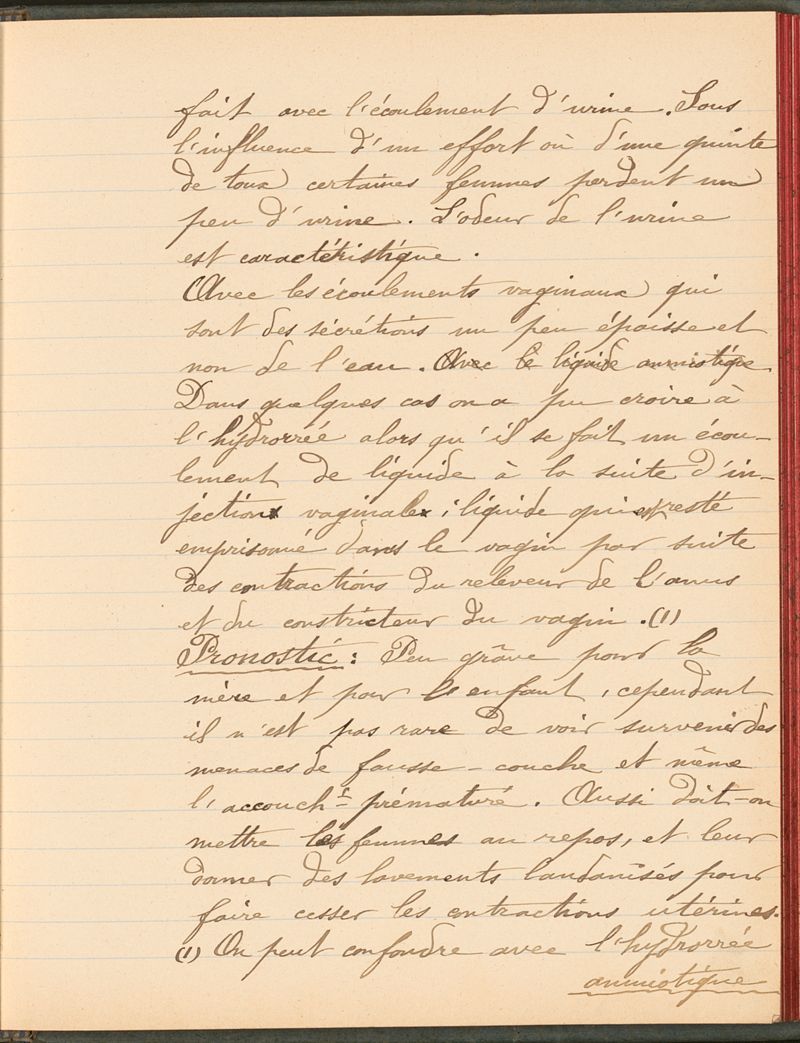 fait avec l'écoulement d'urine. Sous
l'influence d'un effort où d'une quinte
de toux certaines femmes perdent un
peu d'urine. L'odeur de l'urine
est caractéristique.
(Avec les écoulements vaginaux) qui
sont des sécrétions un peu épaisse et
non de l'eau. Avec le liquide amniotique
Dans quelques cas on a pu croire à
l'hydrorrée alors qu'il se fait un écou-
lement de liquide à la suite d'in-
jection vaginale ; liquide qui est resté
emprisonné dans le vagin par suite
des contractions du releveur de l'anus
et du constricteur du vagin. (1)
Pronostic : Peu grâve pour la
mère et pour l'enfant, cependant
il n'est pas rare de voir survenir des
menaces de fausse-couche et même
l'accouch^t prématuré. Aussi doit-on
mettre les femmes au repos, et leur
donner des lavements laudanisés pour
faire cesser les contractions utérines.
(1) On peut confondre avec l'hydrorrée
amniotique